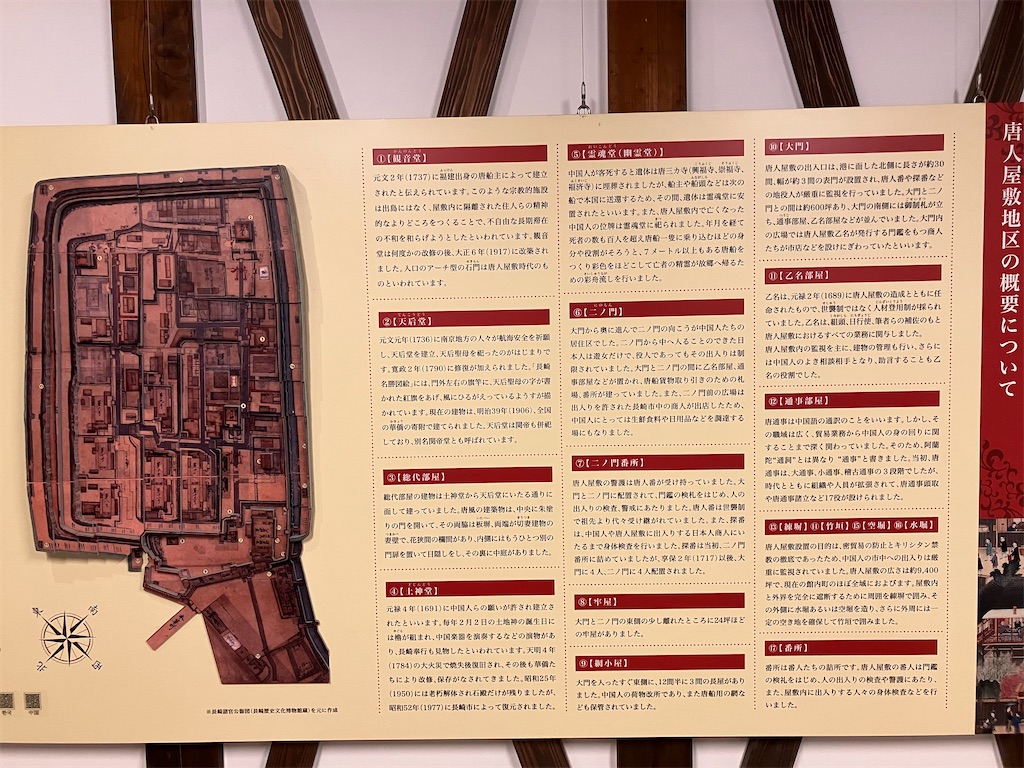 唐人屋敷地区の概要について
①【観音堂】
かんのんどう
元文2年(1737)に福建出身の唐船主によって建立
されたと伝えられています。このような宗教的施設
は出島にはなく、屋敷内に隔離された住人らの精神
的なよりどころをつくることで、不自由な長期滞在
の不和を和らげようとしたといわれています。観音
堂は何度かの改修の後、大正6年(1917)に改築され
ました。入口のアーチ型の石門は唐人屋敷時代のも
のといわれています。
②【天后堂】
てんこうどう
元文元年(1736)に南京地方の人々が航海安全を祈願
し、天后堂を建立、天后聖母を祀ったのがはじまりで
す。寛政2年(1790)に修復が加えられました。「長崎
名勝図絵」には、門外左右の旗竿に、天后聖母の字が書
かれた紅旗をあげ、風にひるがえっているようすが描
かれています。現在の建物は、明治39年(1906)、全国
の華僑の寄附で建てられました。天后堂は関帝も併祀
しており、別名関帝堂とも呼ばれています。
③【総代部屋】
総代部屋の建物は土神堂から天后堂にいたる通りに
面して建っていました。唐風の建築物は、中央に朱塗
りの門を開いて、その両脇は板塀、両端が切妻建物の
妻壁で、花狭間の欄間があり、内側にはもうひとつ別の
門扉を置いて目隠しをし、その裏に中庭がありました。
④【土神堂】
どじんどう
元禄4年(1691)に中国人らの願いが許され建立さ
れたといいます。毎年2月2日の土地神の誕生日に
は櫓が組まれ、中国楽器を演奏するなどの演物があ
り、長崎奉行も見物したといわれています。天明4年
(1784)の大火災で焼失後復旧され、その後も華僑た
ちにより改修、保存がなされてきました。昭和25年
(1950)には老朽解体され石殿だけが残りましたが、
昭和52年(1977)に長崎市によって復元されました。
⑤【霊魂堂(幽霊堂)】
れいこんどう
中国人が客死すると遺体は唐三カ寺(興福寺、崇福寺、
福済寺)に埋葬されましたが、船主や船頭などは次の
船で本国に送還するため、その間、遺体は霊魂堂に安
置されたといいます。また、唐人屋敷内で亡くなった
中国人の位牌は霊魂堂に祀られました。年月を経て
死者の数も百人を超え唐船一隻に乗り込むほどの身
分や役割がそろうと、7メートル以上もある唐船を
つくり彩色をほどこして亡者の精霊が故郷へ帰るた
めの彩舟流しを行いました。
⑥【二ノ門】
にのもん
大門から奥に進んで二ノ門の向こうが中国人たちの
居住区でした。二ノ門から中へ入ることのできた日
本人は遊女だけで、役人であってもその出入りは制
限されていました。大門と二ノ門の間に乙名部屋、通
事部屋などが置かれ、唐船貨物取り引きのための札
場、番所が建っていました。また、二ノ門前の広場は
出入りを許された長崎市中の商人が出店したため、
中国人にとっては生鮮食料や日用品などを調達する
場にもなりました。
⑦【二ノ門番所】
唐人屋敷の警護は唐人番が受け持っていました。大
門と二ノ門に配置されて、門鑑の検札をはじめ、人の
出入りの検査、警戒にあたりました。唐人番は世襲制
で祖先より代々受け継がれていました。また、探番
は、中国人や唐人屋敷に出入りする日本人商人にい
たるまで身体検査を行いました。探番は当初、二ノ門
番所に詰めていましたが、享保2年(1717)以後、大
門に4人、二ノ門に4人配置されました。
⑧【牢屋】
大門と二ノ門の東側の少し離れたところに24坪ほど
の牢屋がありました。
⑨【網小屋】
大門を入ったすぐ東側に、12間半に3間の長屋があり
ました。中国人の荷物改所であり、また唐船用の網な
ども保管されていました。
⑩【大門】
唐人屋敷の出入口は、港に面した北側に長さが約30
間、幅が約3間の表門が設置され、唐人番や探番など
の地役人が厳重に監視を行っていました。大門と二ノ
門との間は約600坪あり、大門の南側には御制札が立
ち、通事部屋、乙名部屋などが並んでいました。大門内
の広場では唐人屋敷乙名が発行する門鑑をもつ商人
たちが市店などを設けにぎわっていたといいます。
⑪【乙名部屋】
乙名は、元禄2年(1689)に唐人屋敷の造成とともに任
命されたもので、世襲制ではなく人材登用制が採られ
ていました。乙名は、組頭、日行使、筆者らの補佐のもと
唐人屋敷におけるすべての業務に関与しました。
唐人屋敷内の監視を主に、建物の管理も行い、さらに
は中国人のよき相談相手となり、助言することも乙
名の役割でした。
⑫【通事部屋】
唐通事は中国語の通訳のことをいいます。しかし、そ
の職域は広く、貿易業務から中国人の身の回りに関
することまで深く関わっていました。そのため、阿蘭
陀“通詞”とは異なり“通事”と書きました。当初、唐
通事は、大通事、小通事、稽古通事の3段階でしたが、
時代とともに組織や人員が拡張されて、唐通事頭取
や唐通事諸立など17役が設けられました。
⑬【練塀】⑭【竹垣】⑮【空堀】⑯【水堀】
唐人屋敷設置の目的は、密貿易の防止とキリシタン禁
教の徹底であったため、中国人の市中への出入りは厳
重に監視されていました。唐人屋敷の広さは約9,400
坪で、現在の館内町のほぼ全域におよびます。屋敷内
と外界を完全に遮断するために周囲を練塀で囲み、そ
の外側に水堀あるいは空堀を造り、さらに外周には一
定の空き地を確保して竹垣で囲みました。
⑰【番所】
番所は番人たちの詰所です。唐人屋敷の番人は門鑑
の検札をはじめ、人の出入りの検査や警護にあたり、
また、屋敷内に出入りする人々の身体検査などを行
いました。
※長崎諸官公衙図(長崎歴史文化博物館蔵)を元に作成
東
南
北
西
한국
中国